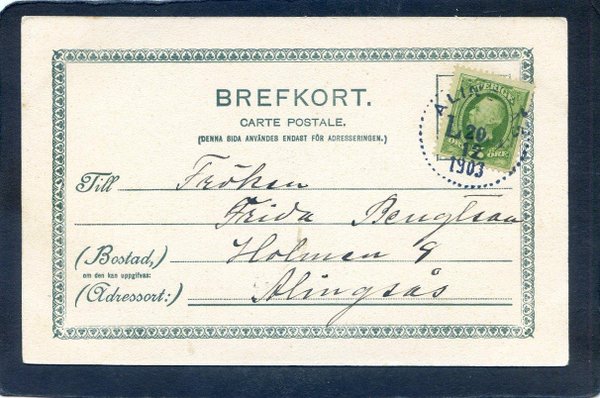 BREFKORT.
CARTE POSTALE.
(DENNA SIDA ANVÄNDES ENDAST FÖR ADRESSERINGEN.)
SVERIGE
ÖRE
ALIN
L 20
12
1903
Till Fröken
Frida Bengtson
(Bostad,) Holmen 9
om den kan uppgifvas:
(Adressort:) Alingsås